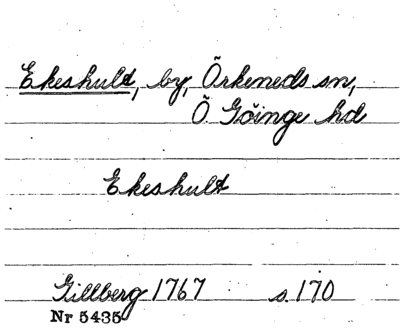 Ekeshult, by, Örkeneds sn,
Ö Göinge hd
Ekeshult
Gillberg 1767 s 170
Nr 5435